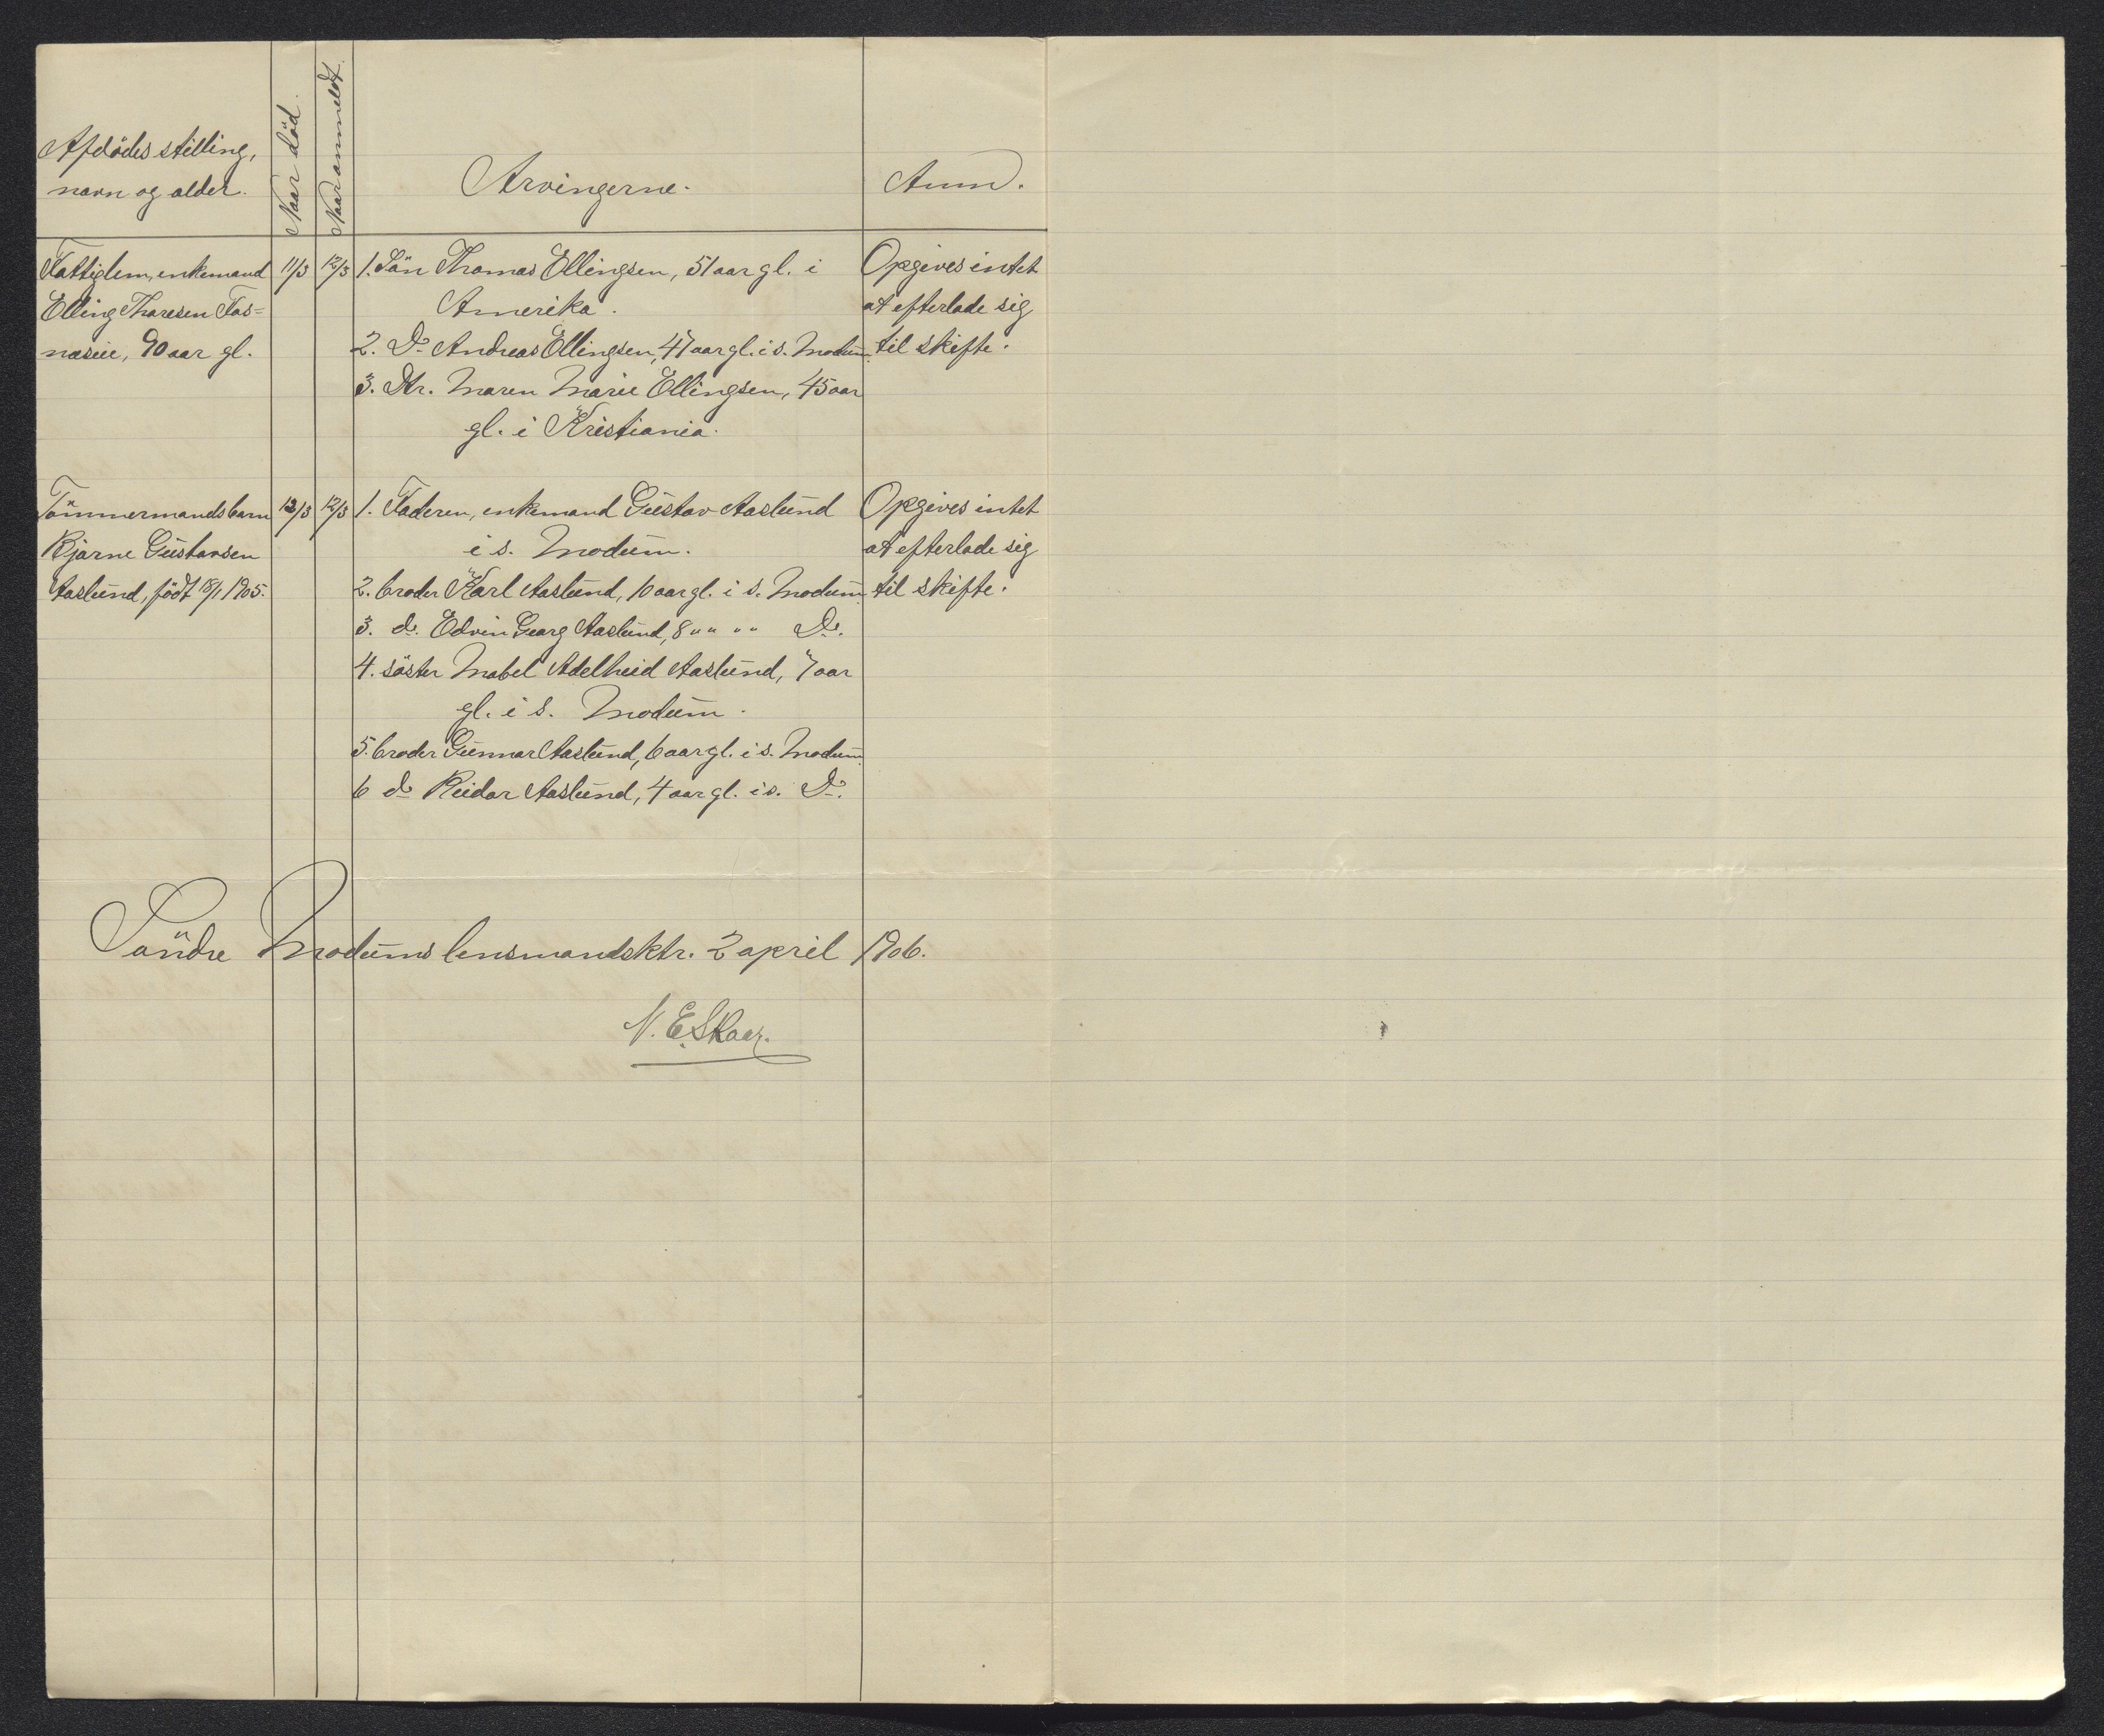 Afdödes stilling,
navn og alder.
Naar död.
Naar anmeldt.
Arvingerne.
Anm.
Fattiglem, enkemand
Elling Thoresen Fos=
næseie, 90 aar gl.
11/3
12/3
1. Sön Thomas Ellingsen, 51 aar gl. i
Amerika.
2. Do Andreas Ellingsen, 47 aar gl. i s. Modum.
3. Dtr. Maren Marie Ellingsen, 45 aar
gl. i Kristiania.
Opgives intet
at efterlade sig
til skifte.
Tömmermandsbarn
Bjarne Gustavsen
Aaslund, födt 18/1 1905.
12/3
12/3
1. Faderen, enkemand Gustav Aaslund
i s. Modum.
2. broder Karl Aaslund, 10 aar gl. i s. Modum.
3. do. Edvin Georg Aaslund, 8 " " " " Do.
4. söster Mabel Adelheid Aaslund, 7 aar
gl. i s. Modum.
5. broder Gunnar Aaslund, 6 aar gl. i s. Modum.
6 do Reidar Aaslund, 4 aar gl. i s. Do.
Opgives intet
at efterlade sig
til skifte.
Söndre Modums lensmandsktr. 2 april 1906.
N. E. Skaar.